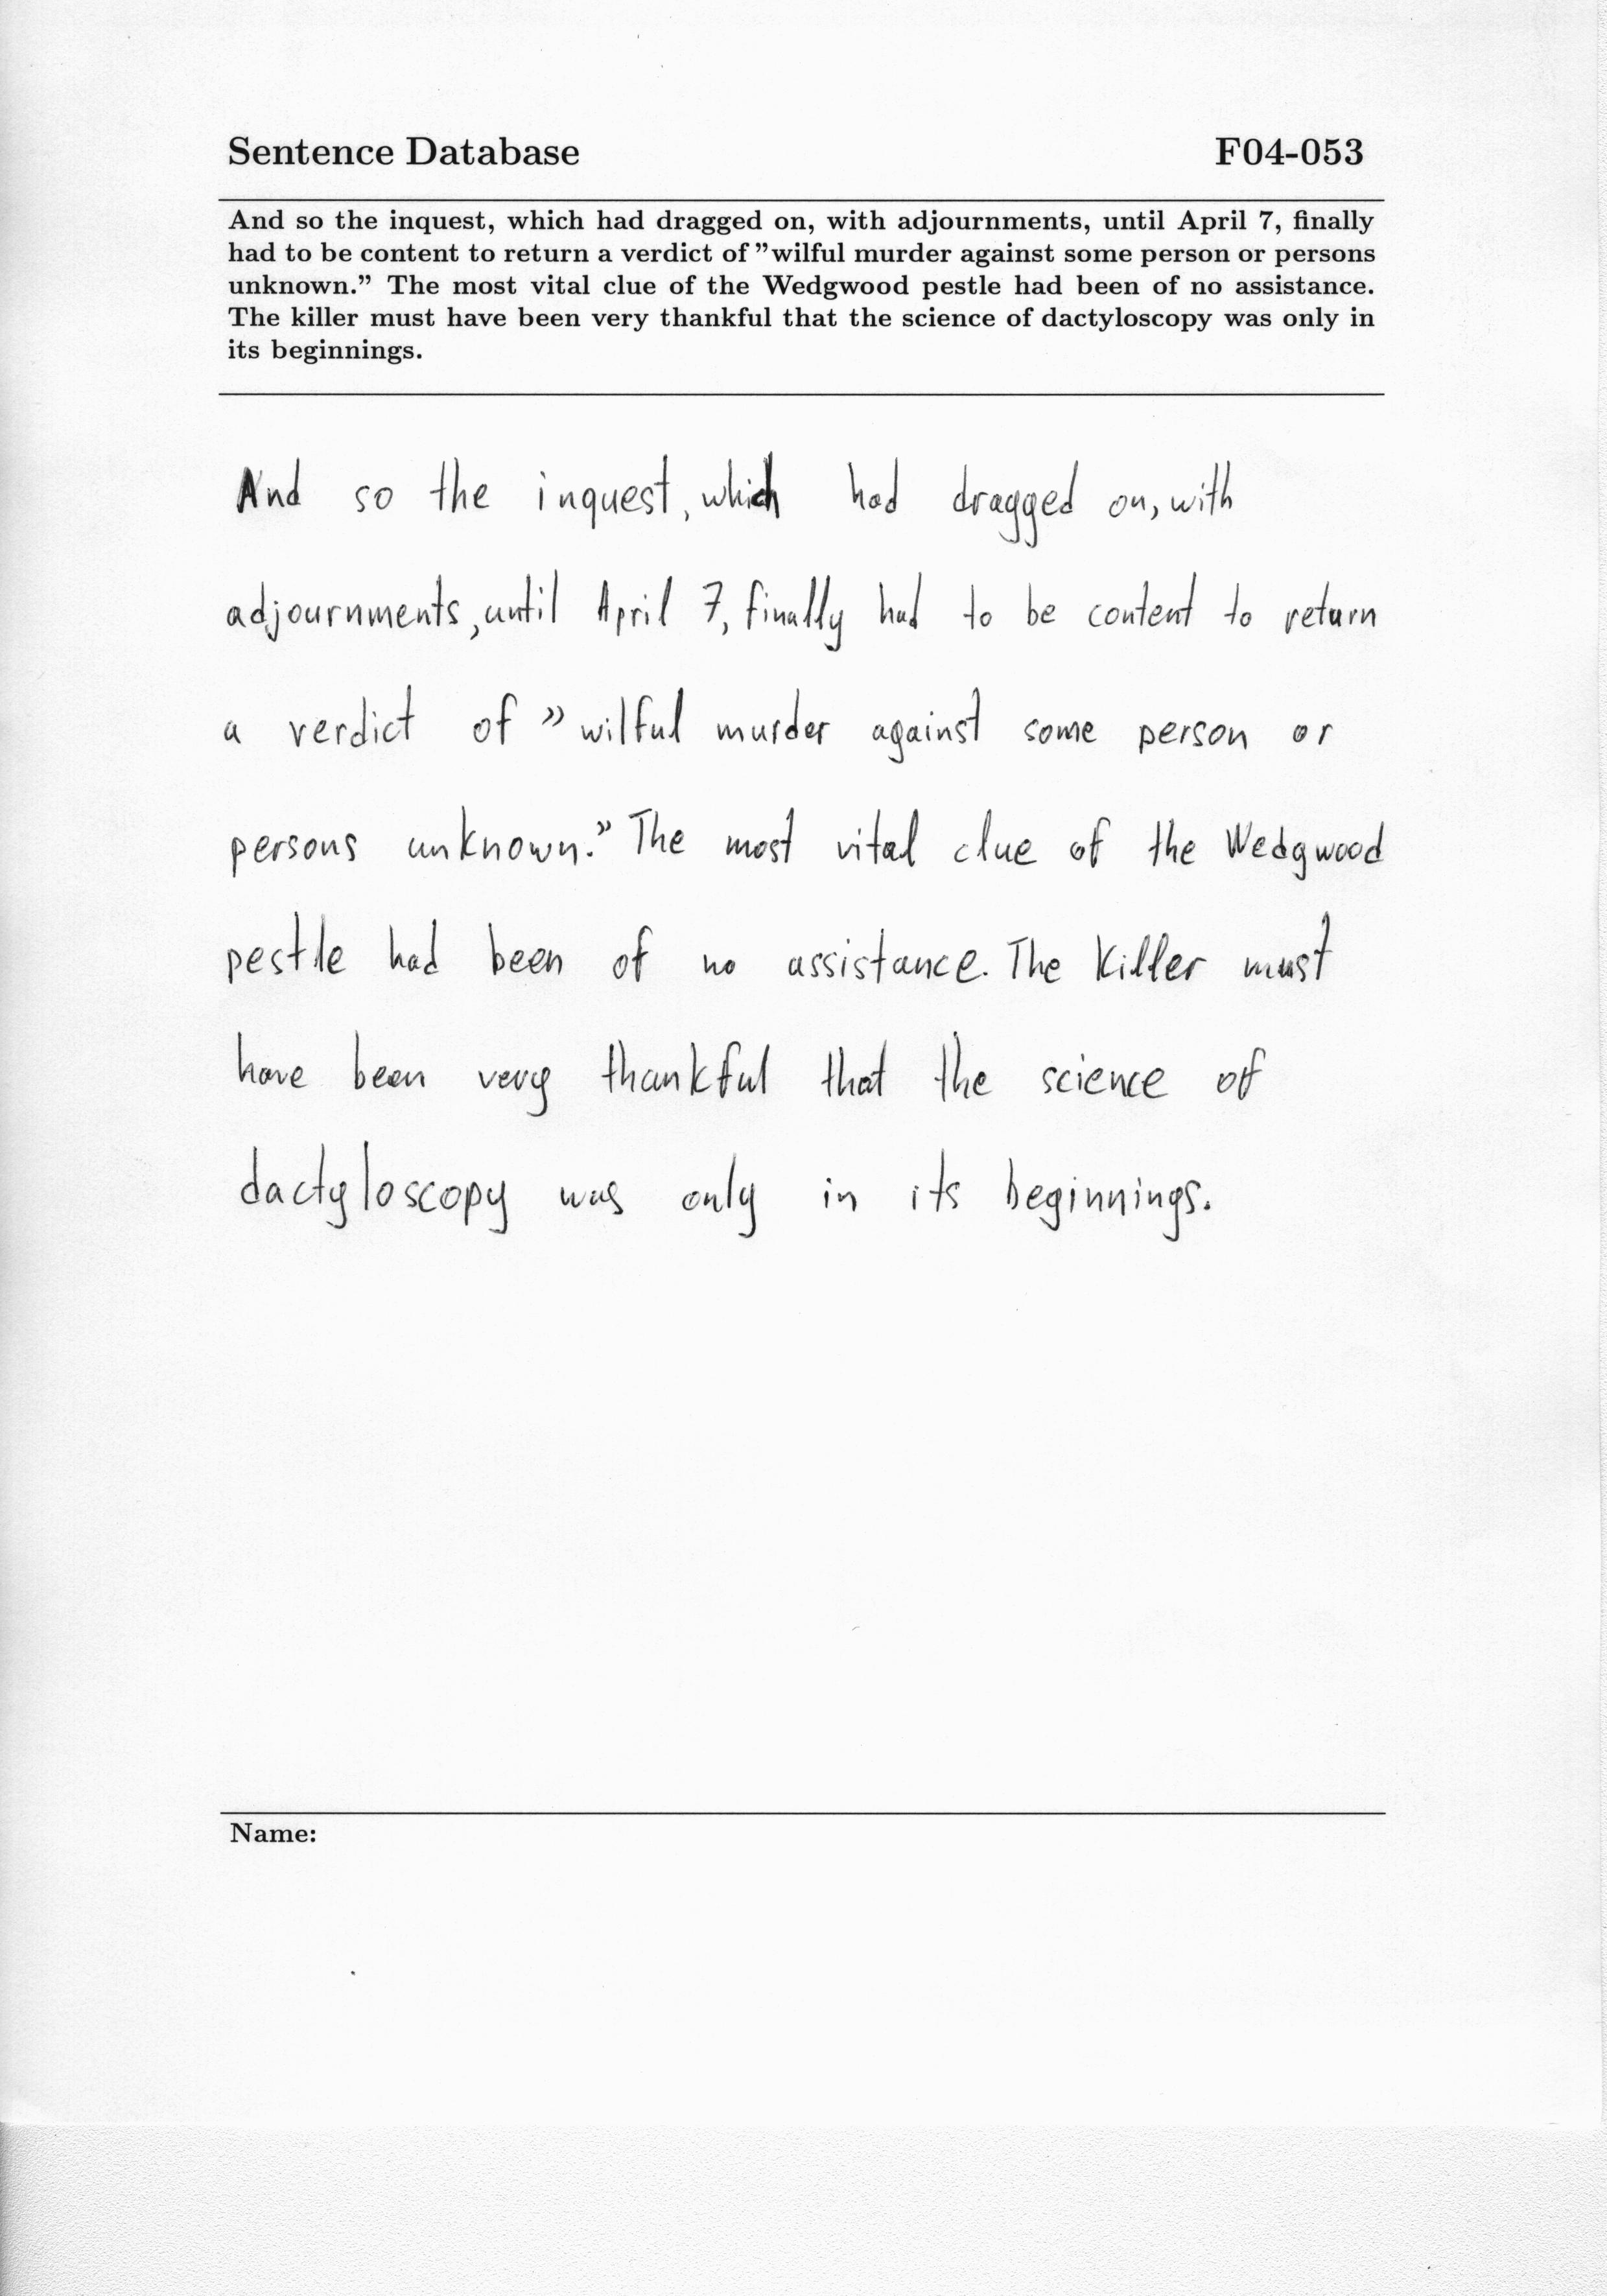 Sentence Database F04-053
And so the inquest, which had dragged on, with adjournments, until April 7, finally
had to be content to return a verdict of "wilful murder against some person or persons
unknown." The most vital clue of the Wedgwood pestle had been of no assistance.
The killer must have been very thankful that the science of dactyloscopy was only in
its beginnings.
And so the inquest, which had dragged on, with
adjournments, until April 7, finally had to be content to return
a verdict of "wilful murder against some person or
persons unknown." The most vital clue of the Wedgwood
pestle had been of no assistance. The killer must
have been very thankful that the science of
dactyloscopy was only in its beginnings.
Name: